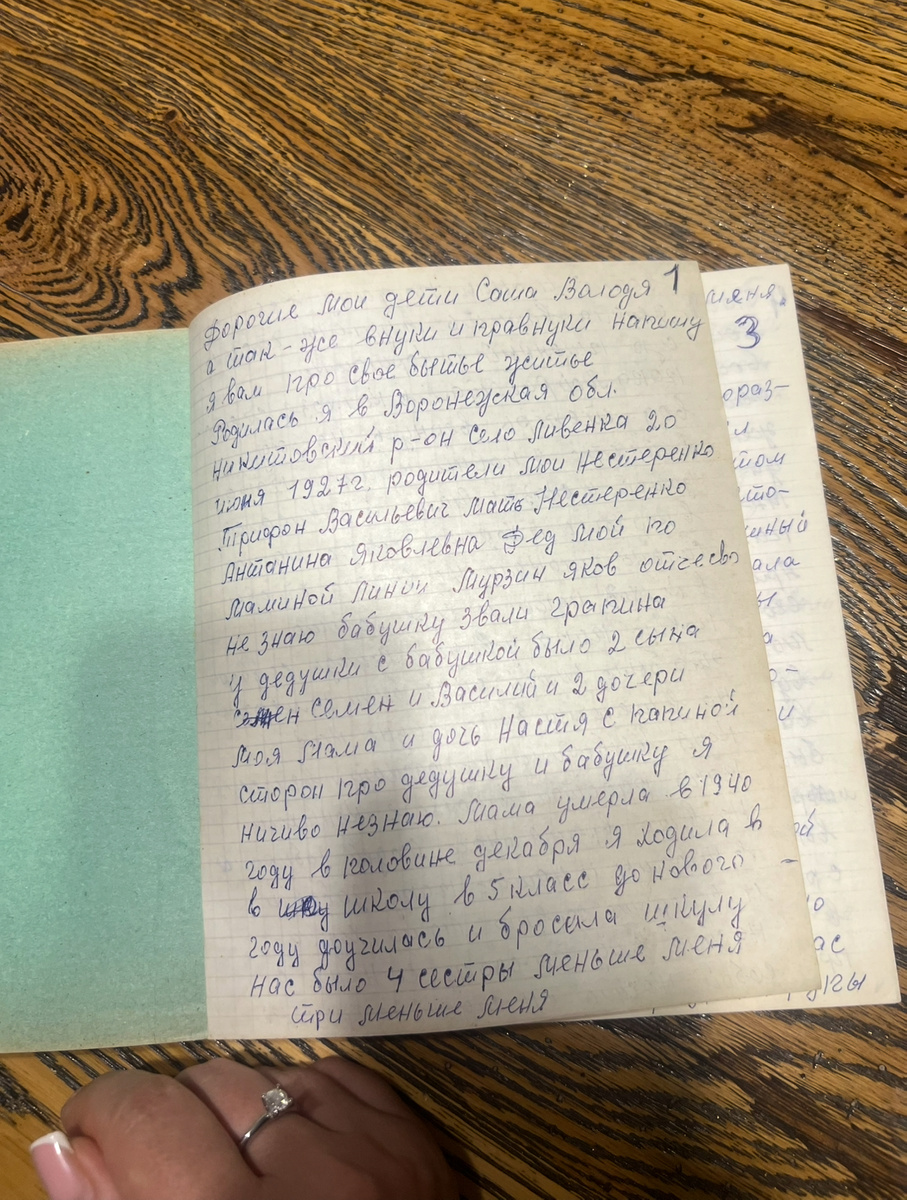 1
Дорогие мои дети Саша Валодя
а так-же внуки и правнуки напишу
я вам про свое бытье житье
Родилась я в Воронежская обл.
Никитовский р-он село Ливенка 20
июня 1927г. родители мои Нестеренко
Трифон Васильевич Мать Нестеренко
Антанина Яковлевна Дед мой по
маминой линии Мурзин Яков отчесво
не знаю бабушку звали Грапина
у дедушки с бабушкой было 2 сына
Семен и Василий и 2 дочери
моя мама и дочь Настя с папиной
сторон про дедушку и бабушку я
ничиво незнаю. Мама умерла в 1940
году в половине декабря я ходила в
в школу в 5 класс до нового
году доучилась и бросила шкулу
нас было 4 сестры меньше меня
три меньше меня
меня,
3
ораз-
том
то-
шный
ала
о-
и
ой
ас